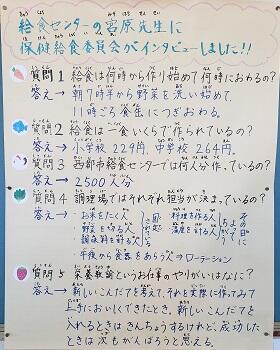 給食センターの宮原先生に
保健給食委員会がインタビューしました!!
質問1 給食は何時から作り始めて何時におわるの?
答え→ 朝7時半から野菜を洗い始めて、
11時ごろ食缶につぎおわる。
質問2 給食は一食いくらで作られているの?
答え→ 小学校229円、中学校264円。
質問3 西都市給食センターでは何人分作っているの?
答え→ 2500人分
質問4 調理場ではそれぞれ担当が決まっているの?
答え→ お米をたく人
野菜を切る人
調味料を計る人
料理を作る人
温度を計る人
午後から食器をあらう人→ローテーション
質問5 栄養教諭というお仕事のやりがいはなに?
答え→ 新しいこんだてを考えて、それを実際に作ってみて
上手においしくできたとき。新しいこんだてを
入れるときはきんちょうするけれど、成功した
ときは次もがんばろうと思える。